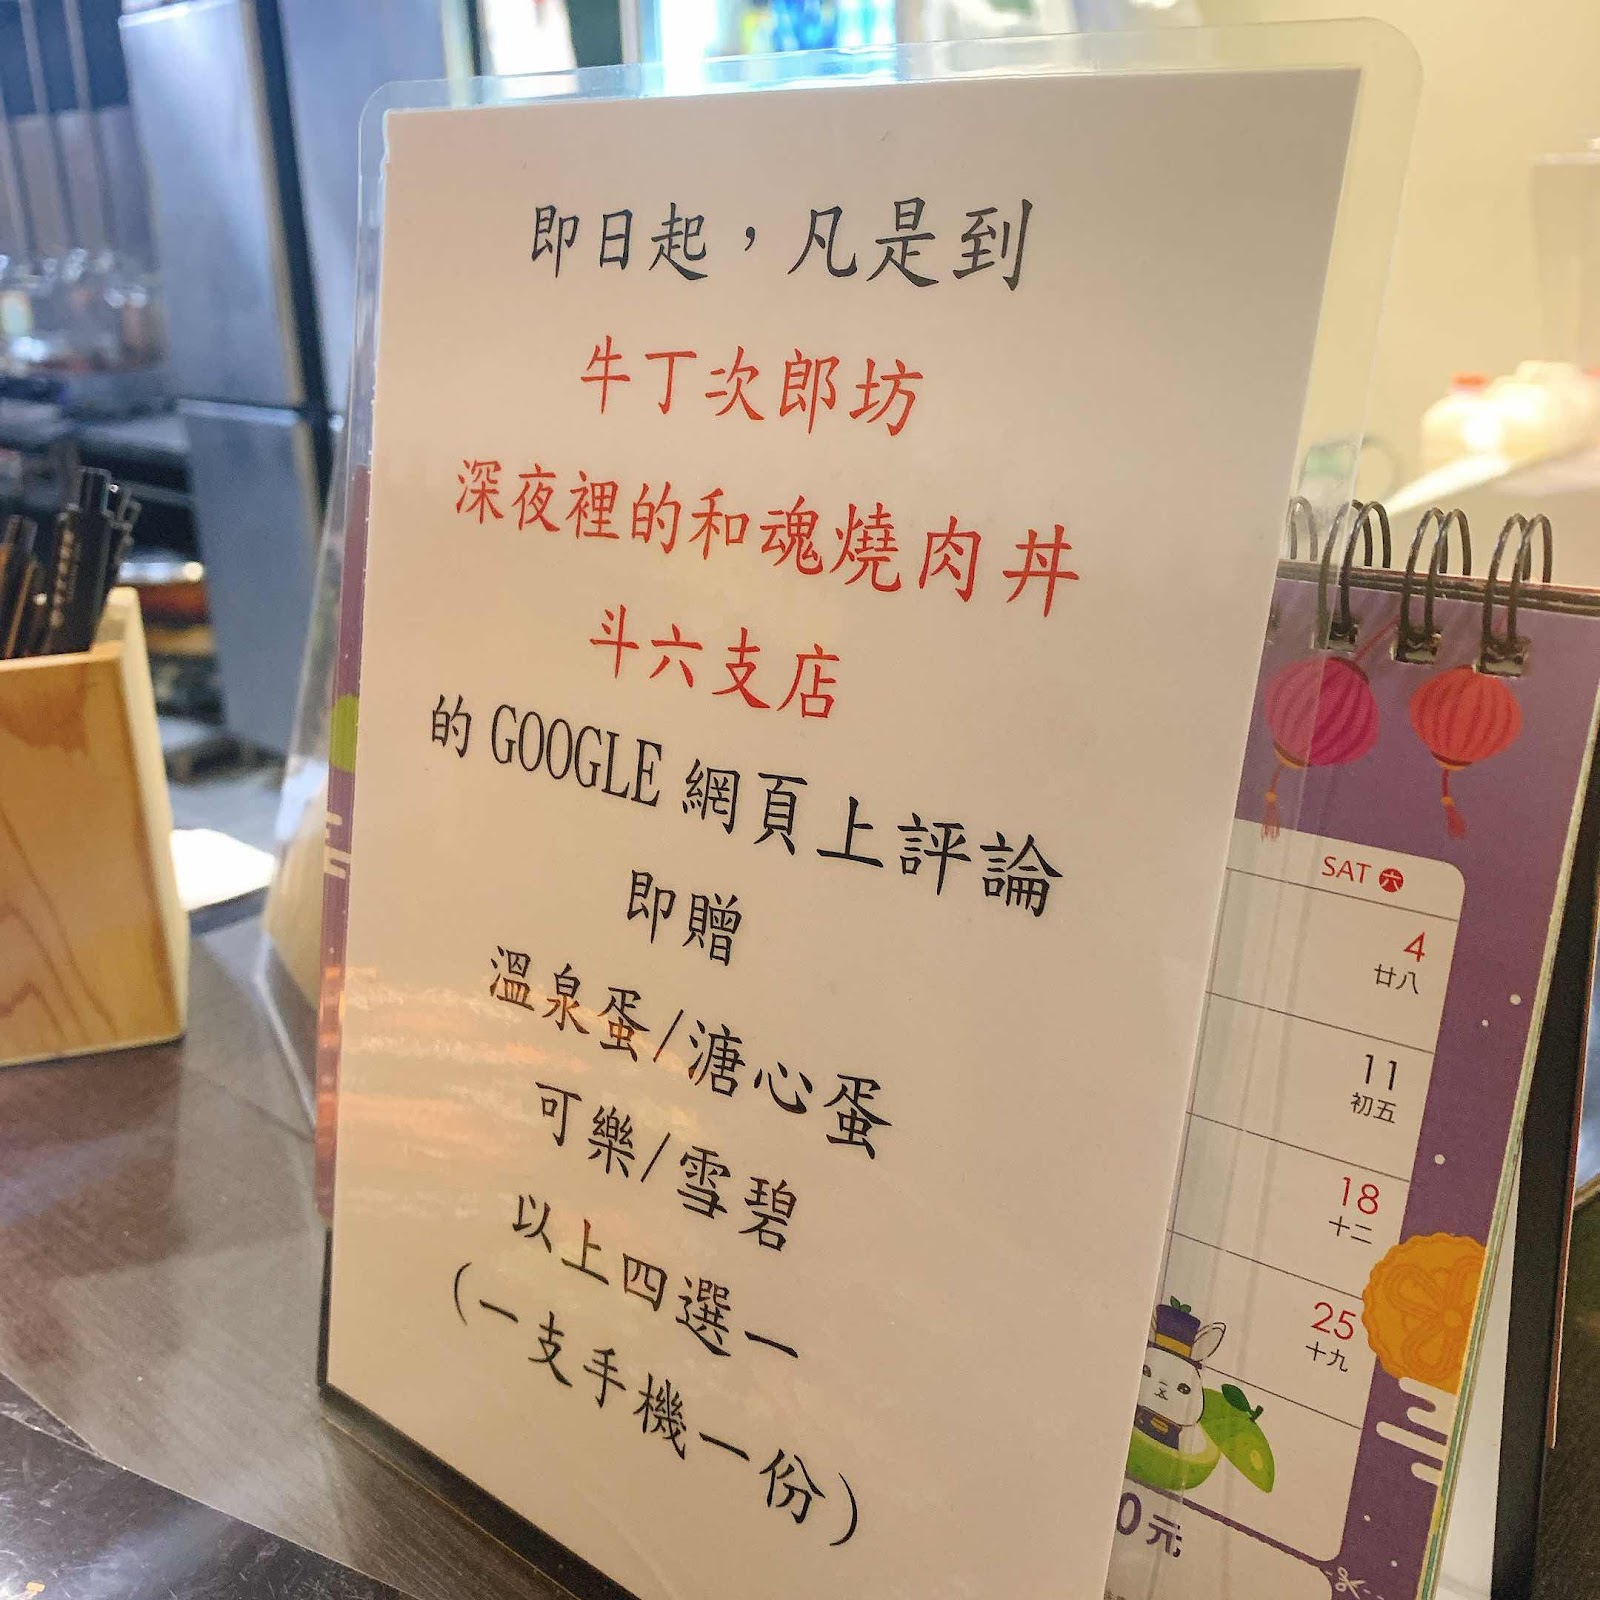 即日起，凡是到
牛丁次郎坊
深夜裡的和魂燒肉丼
斗六支店
的 GOOGLE 網頁上評論
即贈
溫泉蛋/溏心蛋
可樂/雪碧
以上四選一
(一支手機一份)
SAT 六
4
廿八
11
初五
18
十二
25
十九
0元